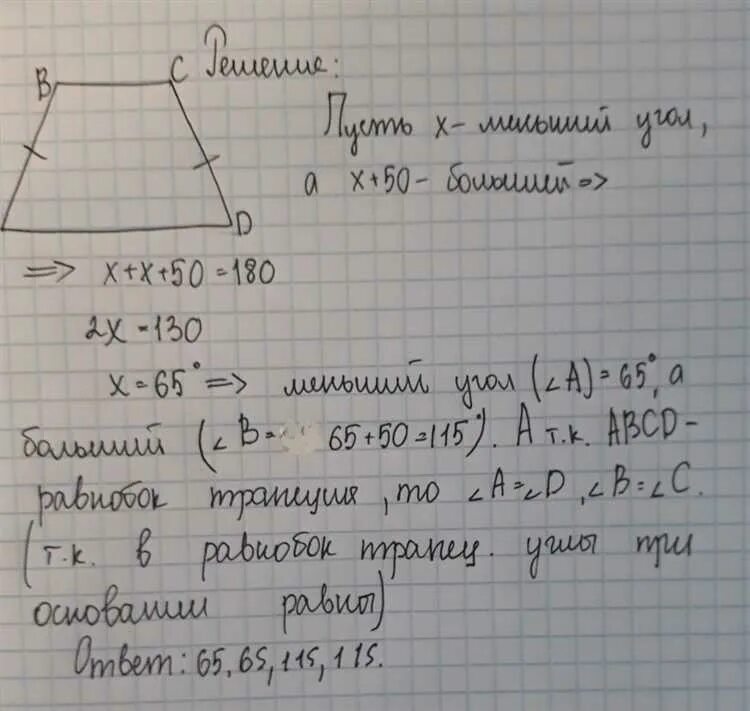 B
C Решение:
Пусть x - меньший угол,
а x+50 - больший =>
D
=> x+x+50=180
2x=130
x=65° => меньший угол (∠A)=65°, а
больший (∠B= 65+50=115°). А т.к. ABCD -
равнобок трапеция, то ∠A=∠D, ∠B=∠C.
(т.к. в равнобок трапец. углы при
основании равны)
Ответ: 65, 65, 115, 115.